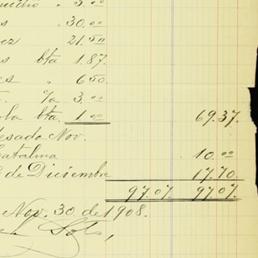 3.00
s 30.00
ez 21.50
s bta 1.87
es " 6.50
Ya 3.00
la bta. 1.00 69.37.
esado Nov.
Catalina 10.00
de Diciembre 17.70
97.07. 97.07.
Nov. 30 de 1908.